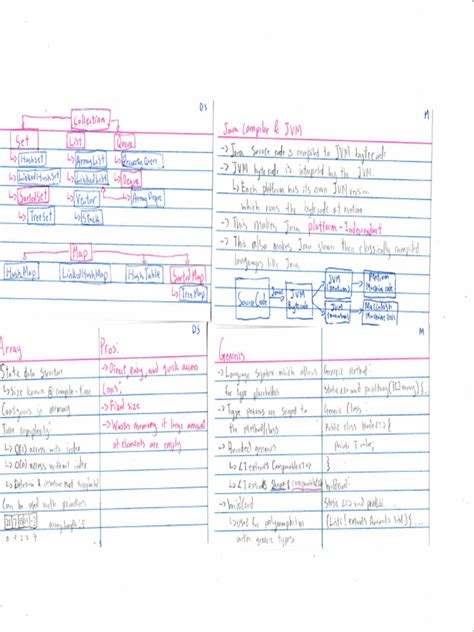 DS
Collection
Set List Queue
↳ HashSet ↳ ArrayList ↳ Priority Queue
↳ LinkedHashSet ↳ LinkedList ↳ Deque
↳ SortedSet ↳ Vector ↳ Array Deque
↳ TreeSet ↳ Stack
Map
HashMap LinkedHashMap HashTable SortedMap
↳ TreeMap
M
Java Compiler & JVM
→ Java source code is compiled to JVM bytecode
→ JVM bytecode is interpreted by the JVM
↳ Each platform has its own JVM version
which runs the bytecode at runtime
→ This makes Java platform-Independent
→ This also makes Java slower than classically compiled
languages like Java
Source Code
JVM Bytecode
JVM
Macintosh
Machine Code
DS
Array
Static data structure
↳ Size known @ compile-time
Contiguous in memory
Time complexity:
↳ O(1) access with index
↳ O(n) access without index
↳ Deletion & insertion not supported
Can be used with primitives
array.length: 5
0 1 2 3 4
Pros:
→ Direct, easy, and quick access
Cons:
→ Fixed size
→ Wastes memory if large amount
of elements are empty
M
Generics
→ Language syntax which allows
for type placeholders
→ Type
the method/class
→ Bounded generics
↳ <T extends Comparable<T>>
↳ <T extends
→ Wildcard
↳ used for polymorphism
with generic types
Generic Method:
Generic Class:
Public class Node<T> {
private T value;
}
Wildcard: